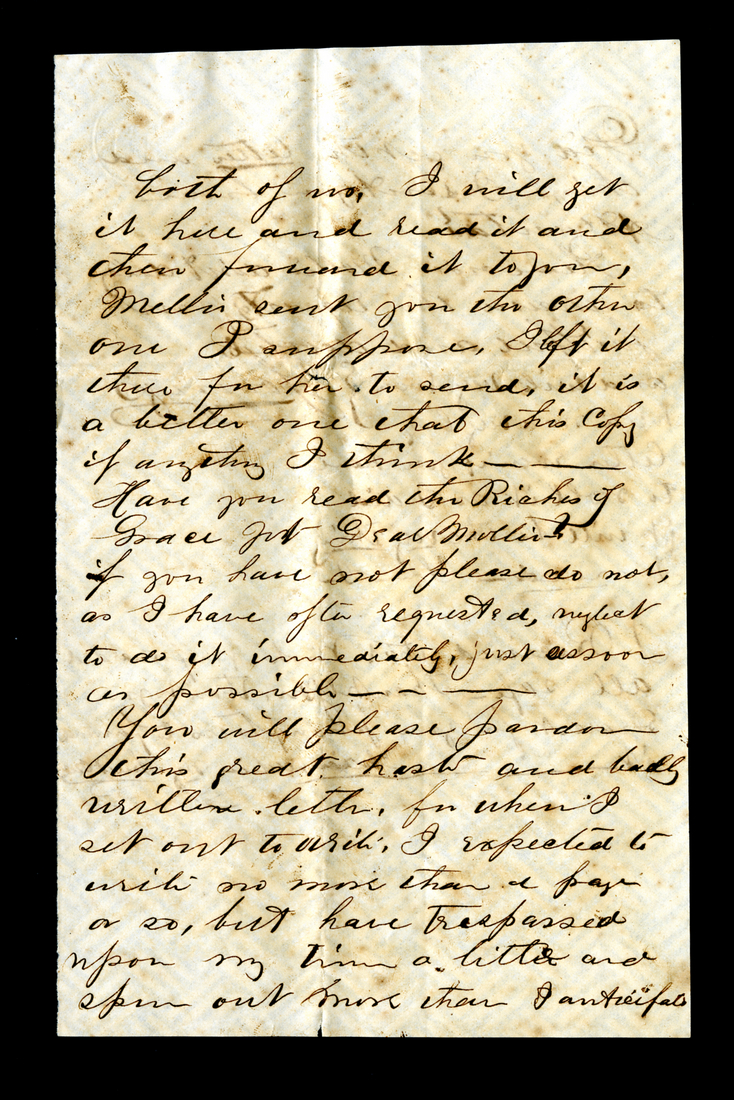 both of us, I will get
it here and read it and
then forward it to you,
Mollie sent you the other
one I suppose, I left it
there for her to send, it is
a better one that this Copy
if anything I think — —
Have you read the Riches of
Grace yet Dear Mollie?
if you have not please do not,
as I have often requested, neglect
to do it immediately, just as soon
as possible — — —
You will please pardon
this great haste and badly
written letter, for when I
set out to write, I expected to
write no more than a page
or so, but have trespassed
upon my time a little and
spun out more than I anticipate